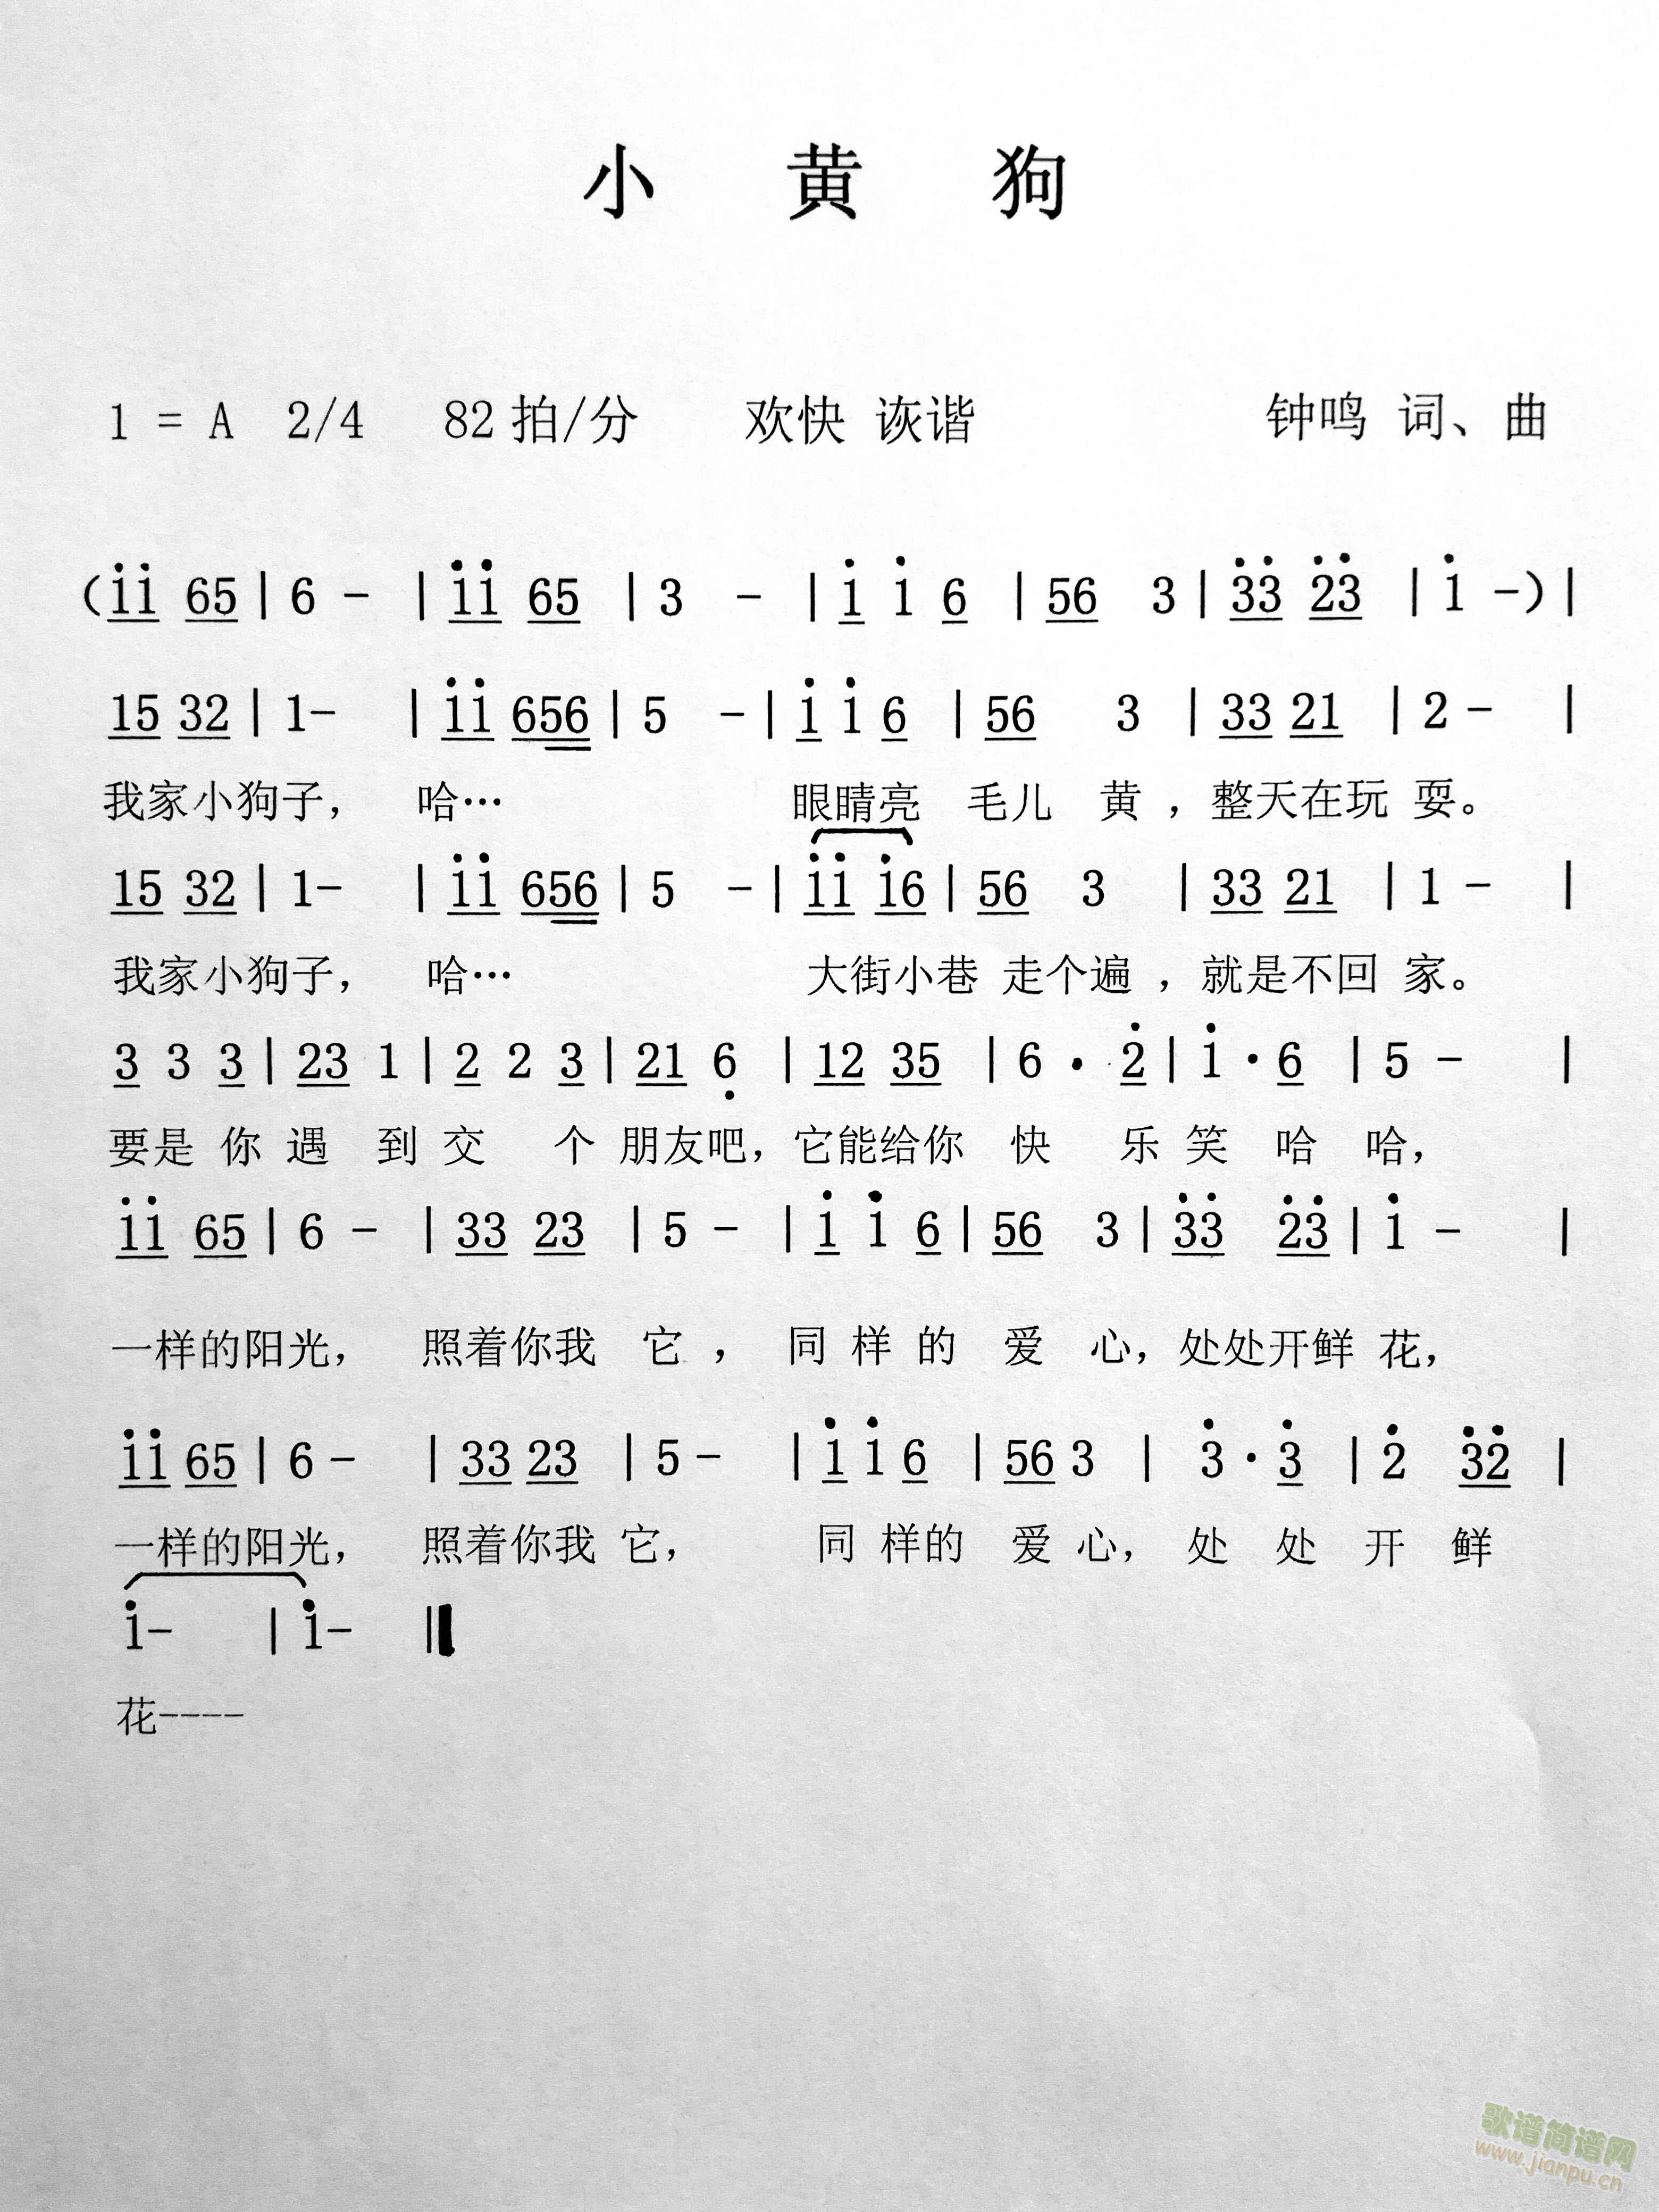 小 黄 狗
1 = A 2/4 82 拍/分 欢快 诙谐 钟鸣 词、曲
(i̇i̇ 65 | 6 - | i̇i̇ 65 | 3 - | i̇ i̇ 6 | 56 3 | 3̇3̇ 2̇3̇ | i̇ -) |
15 32 | 1- | i̇i̇ 656 | 5 - | i̇ i̇ 6 | 56 3 | 33 21 | 2 - |
我家小狗子， 哈… 眼睛亮 毛儿 黄 ，整天在玩 耍。
15 32 | 1- | i̇i̇ 656 | 5 - | i̇i̇ i̇6 | 56 3 | 33 21 | 1 - |
我家小狗子， 哈… 大街小巷 走个遍 ，就是不回 家。
3 3 3 | 23 1 | 2 2 3 | 21 6̣ | 12 35 | 6 · 2̇ | i̇ · 6 | 5 - |
要是 你 遇 到 交 个 朋友吧，它能给你 快 乐 笑 哈 哈，
i̇i̇ 65 | 6 - | 33 23 | 5 - | i̇ i̇ 6 | 56 3 | 3̇3̇ 2̇3̇ | i̇ - |
一样的阳光， 照着你我 它 ， 同 样 的 爱 心，处处开鲜 花，
i̇i̇ 65 | 6 - | 33 23 | 5 - | i̇ i̇ 6 | 56 3 | 3̇ · 3̇ | 2̇ 3̇2̇ |
一样的阳光， 照着你我 它， 同 样的 爱 心， 处 处 开 鲜
i̇- | i̇- ‖
花----
歌谱简谱网
www.jianpu.cn